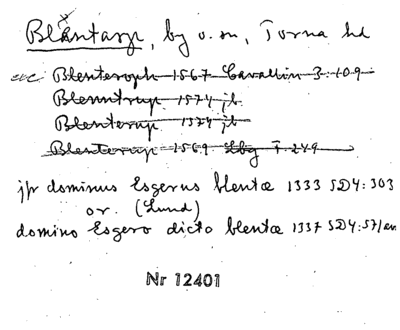 Blentarp, by o. sn, Torna hd
Blenteroph 1567 Cavallin 3:109
Blenntrup 1574 jb
Blenterup 1574 jb
Blenterup 1569 Lbg I. 249
jfr dominus Esgerus blentæ 1333 SD4:303
or. (Lund)
domino Esgero dicto blentæ 1337 SD4:571
Nr 12401